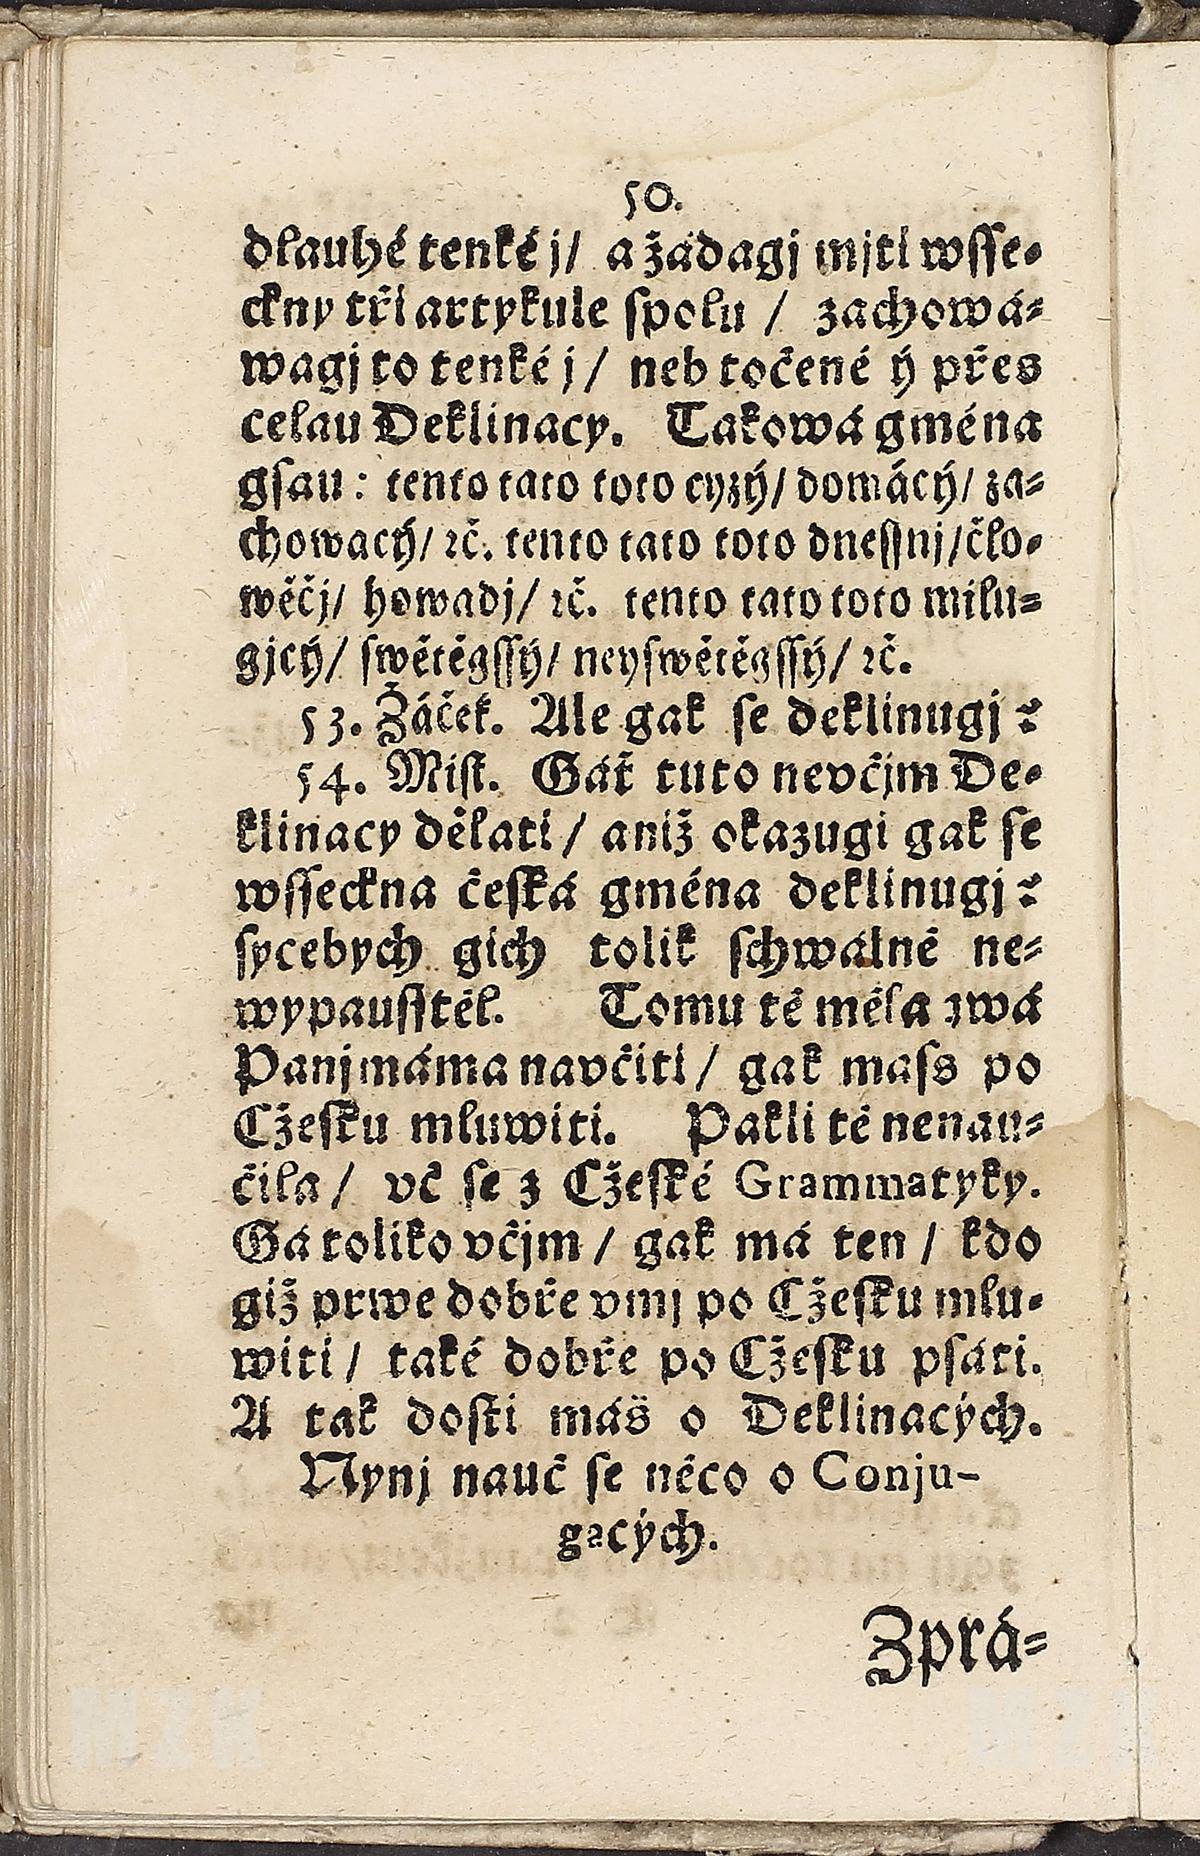 50.
dlauhé tenké j/ a žádagj mjti wſſe-
ckny tři artykule ſpolu / zachowá-
wagj to tenké j/ neb točené ý přes
celau Deklinacy. Takowá gména
gſau: tento tato toto cyzý/ domácý/ za-
chowacý/ ꝛč. tento tato toto dneſſnj/čło-
wěčj/ howadj/ ꝛč. tento tato toto milu-
gjcý/ ſwětěgſſý/ neyſwětěgſſý/ ꝛč.
53. Žáček. Ale gak ſe deklinugj?
54. Miſt. Gáť tuto nevčjm De-
klinacy dělati / aniž okazugi gak ſe
wſſeckna čeſká gména deklinugj?
ſycebych gich tolik ſchwálně ne-
wypauſſtěl. Tomu tě měla twá
Panj máma navčiti / gak maſs po
Cžeſku mluwiti. Pakli tě nenau-
čila / vč ſe z Cžeſké Grammatyky.
Gá toliko včjm / gak má ten / kdo
giž prwe dobře vmj po Cžeſku mlu-
witi / také dobře po Cžeſku pſáti.
A tak doſti máš o Deklinacých.
Nynj nauč ſe něco o Conju-
gacých.
Zprá-
MZK